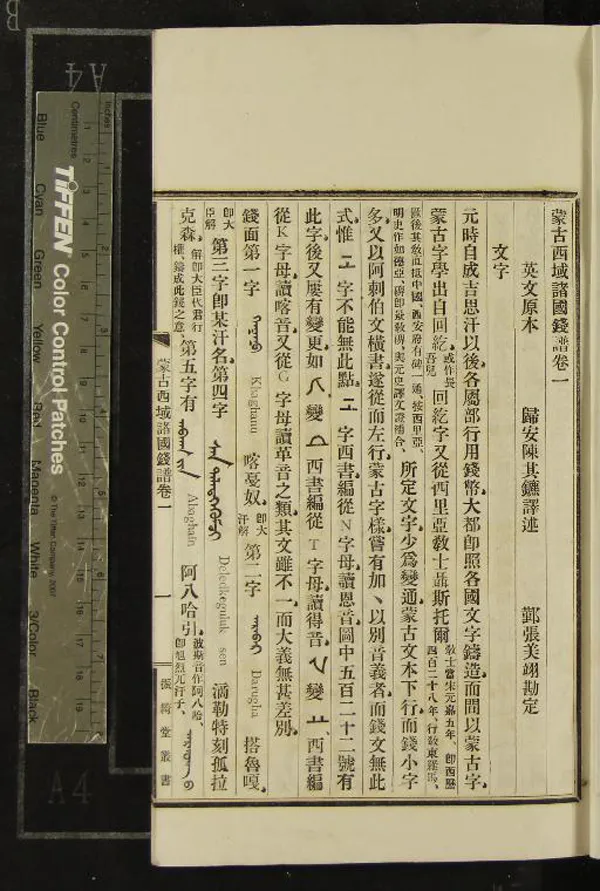 蒙古西域諸國錢譜卷一
英文原本 歸安陳其鑣譯述 鄞張美翊勘定
文字
元時自成吉思汗以後各屬部行用錢幣大都即照各國文字鑄造而間以蒙古字
蒙古字學出自回紇 或作畏吾兒 回紇字又從西里亞教士聶斯托爾 教士當宋元嘉五年、即西歷四百二十八年、行教東羅馬、
厥後其教直抵中國、西安府有碑一通、按西里亞、明史作如德亞、碑即景教碑、與元史譯文證補合、 所定文字少爲變通蒙古文本下行而錢小字
多又以阿剌伯文橫書遂從而左行蒙古字樣嘗有加丶以別音義者而錢文無此
式惟 字不能無此點 字西書編從N字母讀恩音圖中五百二十二號有
此字後又屢有變更如 變 西書編從T字母讀得音 變 西書編
從K字母讀喀音又從G字母讀革音之類其文雖不一而大義無甚差別
錢面第一字 Khaghanu 喀憂奴 即大汗解 第二字 Darugha 搭魯嘎
即大臣解 第三字即某汗名第四字 Deledkeguluk sen 滿勒特刻孤拉
克森 解即大臣代君行權、鑄成此錢之意 第五字有 Abaghain 阿八哈引 波斯音作阿八哈、即旭烈兀汗子、
蒙古西域諸國錢譜卷一
一
張 堂叢書
Inches
Centimetres
TIFFEN Color Control Patches
© The Tiffen Company, 2007
Blue
Cyan
Green
Yellow
Red
Magenta
White
3/Color
Black
A4
A4
B